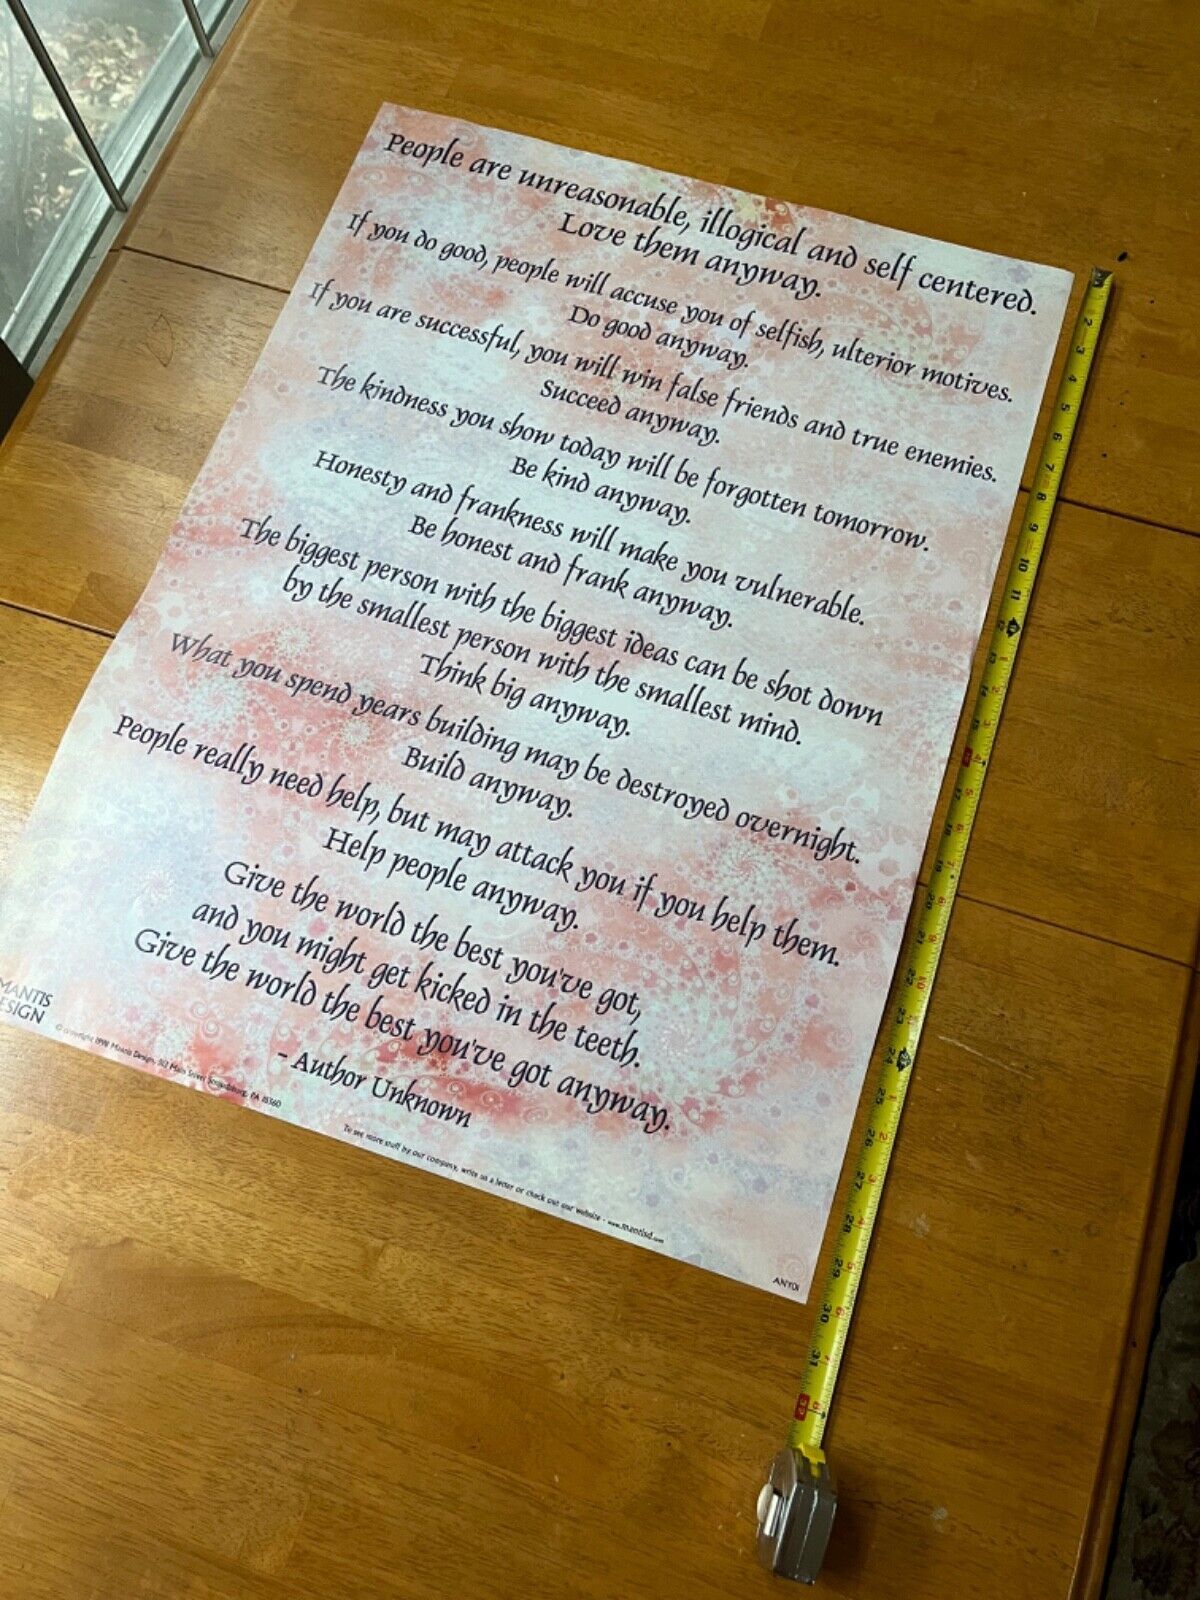 People are unreasonable, illogical and self centered.
Love them anyway.
If you do good, people will accuse you of selfish, ulterior motives.
Do good anyway.
If you are successful, you will win false friends and true enemies.
Succeed anyway.
The kindness you show today will be forgotten tomorrow.
Be kind anyway.
Honesty and frankness will make you vulnerable.
Be honest and frank anyway.
The biggest person with the biggest ideas can be shot down
by the smallest person with the smallest mind.
Think big anyway.
What you spend years building may be destroyed overnight.
Build anyway.
People really need help, but may attack you if you help them.
Help people anyway.
Give the world the best you've got,
and you might get kicked in the teeth.
Give the world the best you've got anyway.
- Author Unknown
MANTIS
DESIGN
© copyright 1998 Mantis Design, Main Street PA
To see more stuff by our company, write us a letter or check out our website - www.mantisd.com
ANY01
2 3 4 5 6 7 8 9 10 11 13 14 15 17 18 19 20 21 22 23 24 25 26 27 28 29 30 31 32